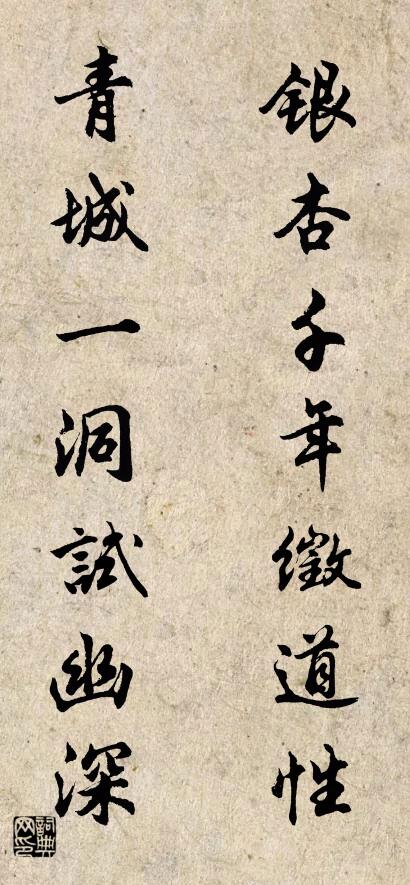 銀杏千年徵道性
青城一洞試幽深
詞典网印